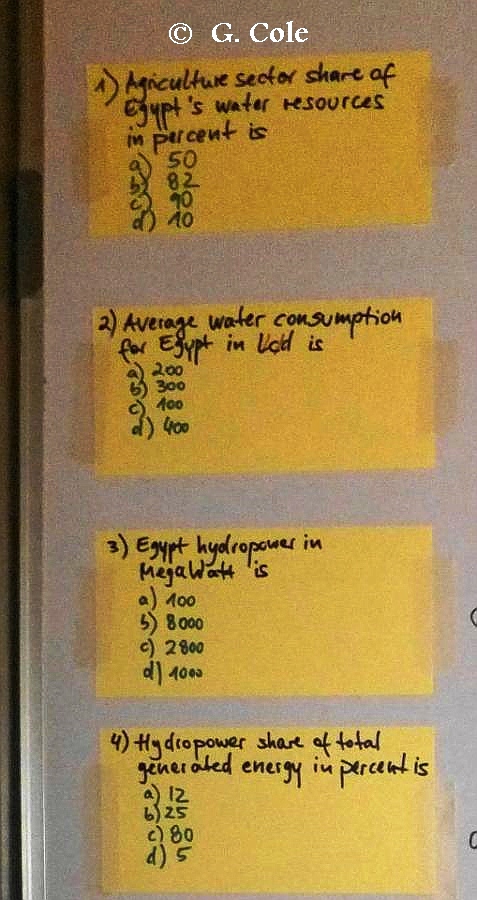 © G. Cole
1) Agriculture sector share of
Egypt's water resources
in percent is
a) 50
b) 82
c) 90
d) 10
2) Average water consumption
for Egypt in lcd is
a) 200
b) 300
c) 100
d) 400
3) Egypt hydropower in
MegaWatt is
a) 100
b) 8000
c) 2800
d) 1000
4) Hydropower share of total
generated energy in percent is
a) 12
b) 25
c) 80
d) 5